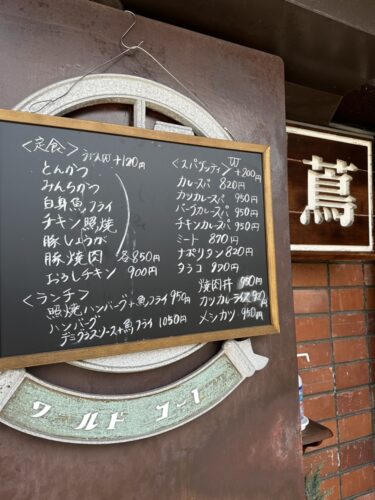 <定食>
うどん付 +120円
とんかつ
みんちかつ
白身魚フライ
チキン照焼
豚しょうが
豚焼肉 各850円
おろしチキン 900円
<ランチ>
照焼ハンバーグ+魚フライ 950円
ハンバーグ
デミグラスソース+魚フライ 1050円
<スパゲッティ>
+200円
カレースパ 820円
カツカレースパ 950円
バーグカレースパ 950円
チキンカレースパ 950円
ミート 820円
ナポリタン 820円
タラコ 820円
焼肉丼 950円
カツカレーライス
メシカツ 950円
蔦
ワールド コーヒー